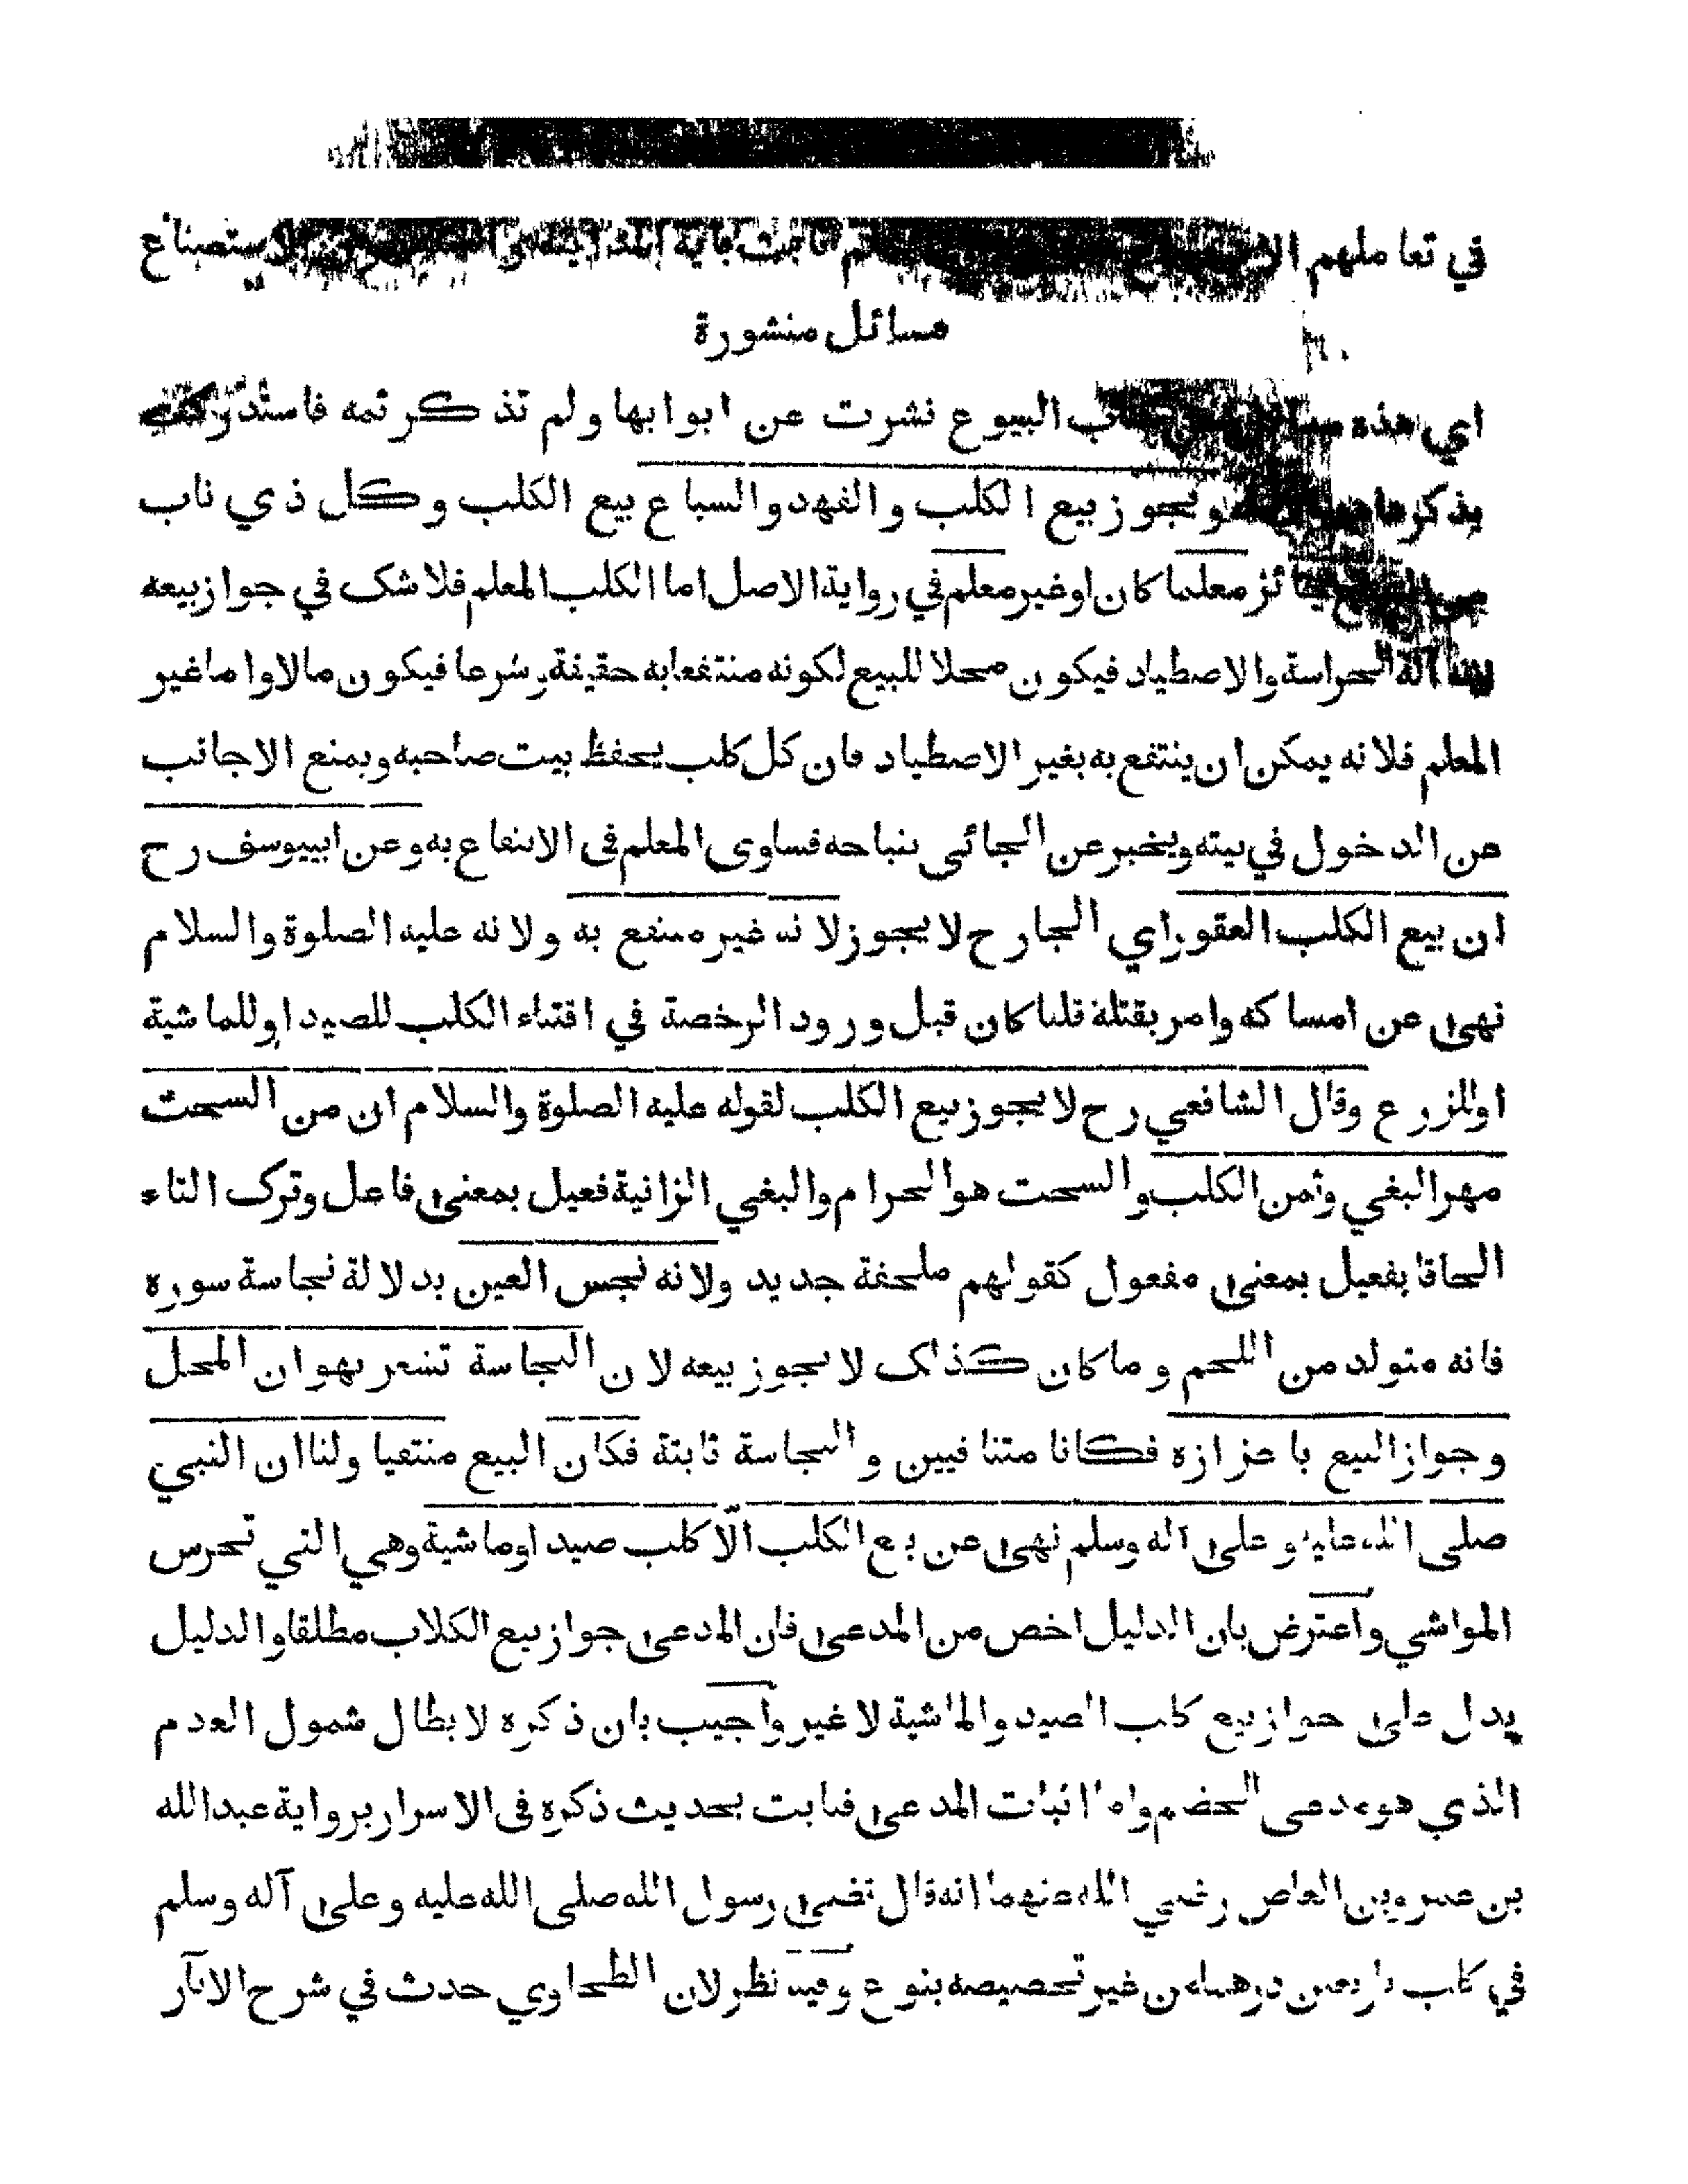 في تعا ملهم ثابت باية المداينة الاستصناع
مسائل منشورة
اي هذه البيوع نشرت عن ابوابها ولم تذكر ثمه فاستدرك
يذكرها ويجوز بيع الكلب والفهد والسباع بيع الكلب وكل ذي ناب
معلما كان او غير معلم في رواية الاصل اما الكلب المعلم فلا شك في جواز بيعه
لانه آلة الحراسة والاصطياد فيكون محلا للبيع لكونه منتفعا به حقيقة وشرعا فيكون مالا واما غير
المعلم فلانه يمكن ان ينتفع به بغير الاصطياد فان كل كلب يحفظ بيت صاحبه ويمنع الاجانب
عن الدخول في بيته ويخبر عن الجائى بنباحه فساوى المعلم فى الانتفاع به وعن ابييوسف رح
ان بيع الكلب العقور اي الجارح لا يجوز لانه غير منتفع به ولانه عليه الصلوة والسلام
نهى عن امساكه وامر بقتله قلنا كان قبل ورود الرخصة في اقتناء الكلب للصيد او للماشية
او للزرع وقال الشافعي رح لا يجوز بيع الكلب لقوله عليه الصلوة والسلام ان من السحت
مهر البغي وثمن الكلب والسحت هو الحرام والبغي الزانية فعيل بمعنى فاعل وترك التاء
الحاقا بفعيل بمعنى مفعول كقولهم ملحفة جديد ولانه نجس العين بدلالة نجاسة سوره
فانه متولد من اللحم وما كان كذلك لا يجوز بيعه لان النجاسة تشعر بهوان المحل
وجواز البيع باعزازه فكانا متنافيين والنجاسة ثابتة فكان البيع منتفيا ولنا ان النبي
صلى الله عليه وعلى آله وسلم نهى عن بيع الكلب الّا كلب صيد او ماشية وهي التي تحرس
المواشي واعترض بان الدليل اخص من المدعى فان المدعى جواز بيع الكلاب مطلقا والدليل
يدل على جواز بيع كلب الصيد والماشية لا غير واجيب بان ذكره لابطال شمول العدم
الذي هو مدعى الخصم واما اثبات المدعى فثابت بحديث ذكره فى الاسرار برواية عبدالله
بن عمرو بن العاص رضي الله عنهما انه قال قضى رسول الله صلى الله عليه وعلى آله وسلم
في كلب باربعين درهما من غير تخصيصه بنوع وفيه نظر لان الطحاوي حدث في شرح الاثار